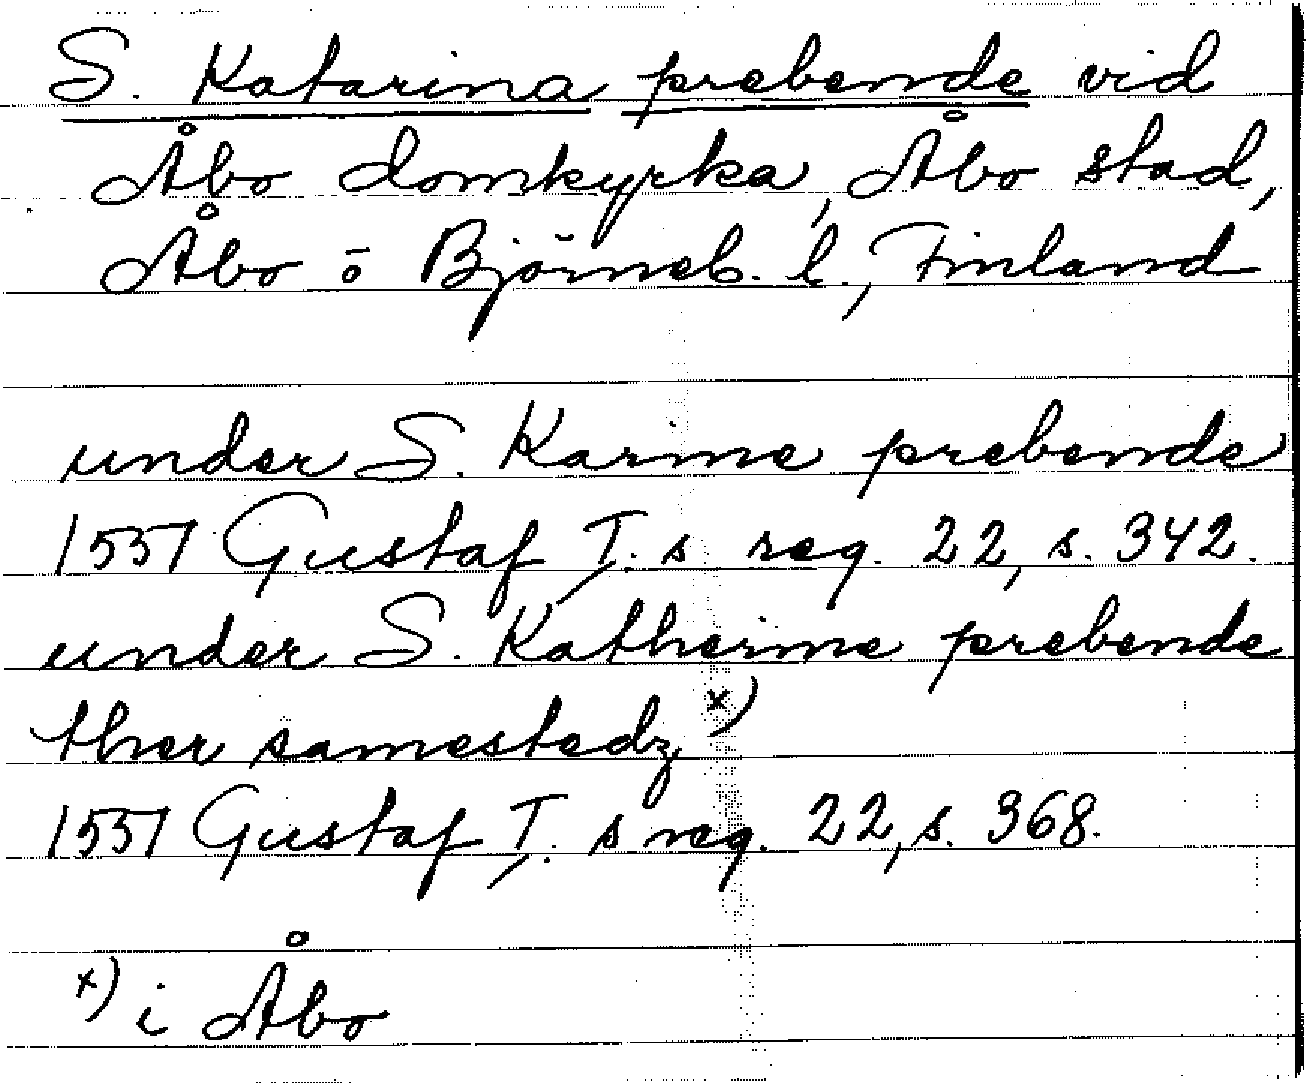 S. Katarina prebende vid
Åbo domkyrka, Åbo stad,
Åbo o Björneb. l., Finland
under S. Karine prebende
1551 Gustaf I. s reg. 22, s. 342.
under S. Katherine prebende
ther samestedz x)
1551 Gustaf I. s reg. 22, s. 368.
x) i Åbo